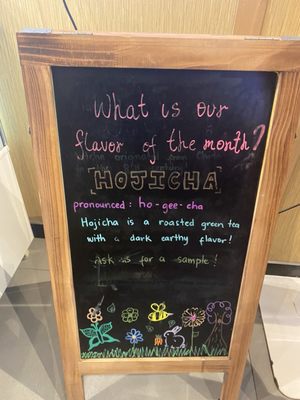 What is our
flavor of the month?
[HOJICHA]
pronounced: ho-gee-cha
Hojicha is a roasted green tea
with a dark earthy flavor!
Ask us for a sample!